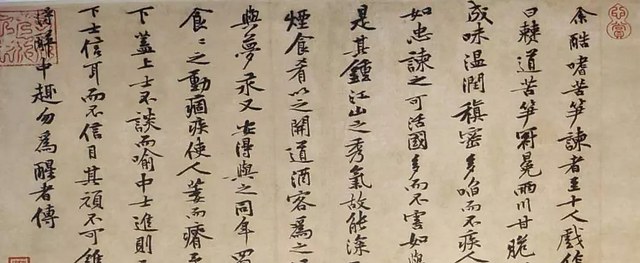 余酷嗜苦笋諫者至十人戲作
曰僰道苦笋冠冕兩川甘脆
成味溫潤縝密多啗而不疾人
如忠諫之可活國多而不害如舉
是其鍾江山之秀氣故能深
煙食肴以之開道酒客為之
與夢永又安得與之同年蜀
食〻之動痼疾使人萎而瘠
下蓋上士不談而喻中士進則
下士信耳而不信目其頑不可鐫
得醉中趣勿為醒者傳